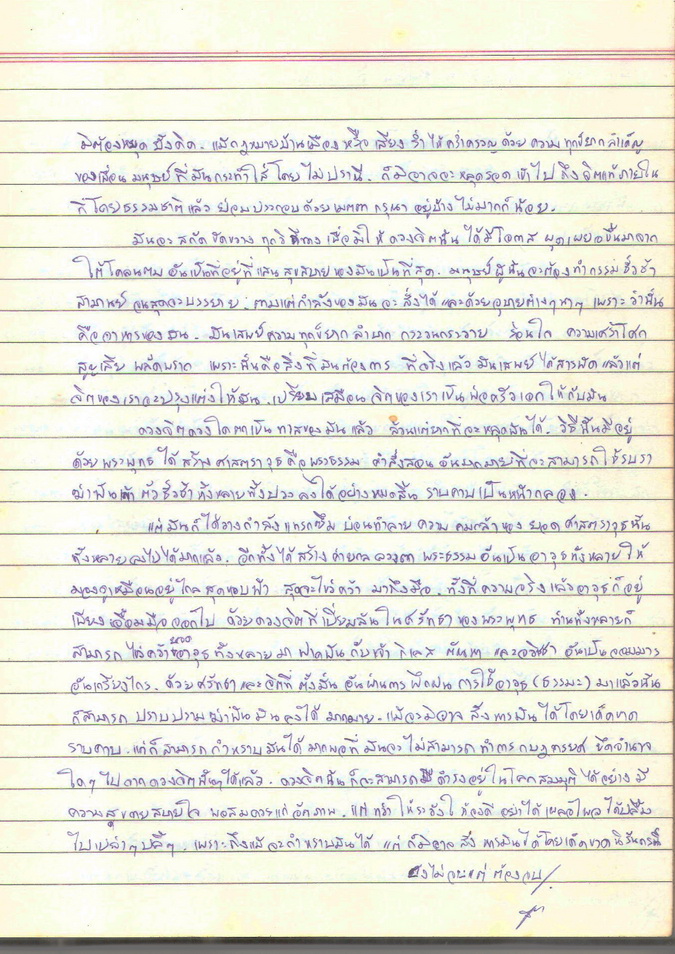 มิต้องหยุด ยั้งคิด. แม้กฎหมายบ้านเมือง หรือ เสียง ร่ำไห้คร่ำครวญ ด้วย ความ ทุกข์ยาก ลำเค็ญ
ของเพื่อน มนุษย์ ที่มันกระทำใส่ โดย ไม่ ปรานี. ก็มิอาจจะ หลุดรอด เข้าไป ถึงจิตแท้ภายใน
ที่โดยธรรมชาติแล้ว ย่อม ประกอบ ด้วย เมตตา กรุณา อยู่บ้าง ไม่มากก็น้อย.
มันจะ สกัด ขัดขวาง ทุกวิถีทาง เพื่อมิให้ ดวงจิตนั้น ได้มีโอกาส ผุดเผยอขึ้นมาจาก
ใต้โคลนตม อันเป็นที่อยู่ที่แสนสุขสบายของมันเป็นที่สุด. มนุษย์ผู้นั้นจะต้องทำกรรมชั่วช้า
สามานย์ จนสุดจะบรรยาย. ตามแต่กำลังของมันจะ สั่งได้ และด้วยอุบายต่างๆนาๆ เพราะว่านั่น
คืออาหารของมัน. มันเสพย์ความทุกข์ยาก ลำบาก กระวนกระวาย ร้อนใจ ความเศร้าโศก
สูญเสีย พลัดพราก เพราะนั่นคือสิ่งที่มันต้องการ ที่จริงแล้ว มันเสพย์ได้สารพัด แล้วแต่
จิตของเราจะปรุงแต่งให้มัน. เปรียบเสมือน จิตของเราเป็นพ่อครัวเอกให้กับมัน
ดวงจิตดวงใดตกเป็นทาสของมันแล้ว ล้วนแต่ยากที่จะหลุดพ้นได้. วิธีนั้นมีอยู่
ด้วยพระพุทธ ได้สร้างศาสตราวุธคือพระธรรม คำสั่งสอน อันมากมายที่จะสามารถใช้รบรา
ฆ่าฟันเจ้า ตัวชั่วช้าทั้งหลายทั้งปวงลงได้อย่างหมดสิ้น ราบคาบเป็นหน้ากลอง.
แต่มันก็ได้วางกำลังแทรกซึม บ่อนทำลาย ความ คมกล้าของ ยอดศาสตราวุธนั้น
ทั้งหลายลงไปได้มากแล้ว. อีกทั้งได้สร้างค่ายกลลวงตา พระธรรม อันเป็นอาวุธทั้งหลายให้
มองดูเหมือนอยู่ไกล สุดขอบฟ้า สุดจะไขว่คว้า มาถึงมือ. ทั้งที่ความจริงแล้วอาวุธก็อยู่
เพียงเอื้อมมือออกไป ด้วยดวงจิตที่เปี่ยมล้นในศรัทธา ของพระพุทธ ท่านทั้งหลายก็
สามารถไขว่คว้าของอาวุธทั้งหลายมา ฟาดฟัน กับเจ้า กิเลส ตัณหา และอวิชชา อันเป็นจอมมาร
อันเกรียงไกร. ด้วยศรัทธาและจิตที่ตั้งมั่น อันผ่านการฝึกฝน การใช้อาวุธ (ธรรมะ) มาแล้วนั้น
ก็สามารถ ปราบปรามฆ่าฟันมันลงได้ มากมาย. แม้จะมิอาจ สังหารมันได้ โดยเด็ดขาด
ราบคาบ. แต่ก็สามารถกำหราบมันได้ มากพอที่มันจะไม่สามารถ ทำการกบฏทรยศ ยึดอำนาจ
ใดๆ ไปจากดวงจิตนั้นๆได้แล้ว. ดวงจิตนั้นก็จะสามารถดำรงอยู่ในโลกสมมุติได้อย่างมี
ความสุขกายสบายใจ พอสมควรแก่อัตภาพ. แต่ ทว่า ให้ระวังไว้ จงดี อย่าได้เผลอไผลได้ปลื้ม
ไปเปล่าๆปลี้ๆ. เพราะถึงแม้จะกำหราบมันได้ แต่ก็มิอาจ สังหารมันได้โดยเด็ดขาดนิรันดร์
ยังไม่จบแต่ต้องจบ/